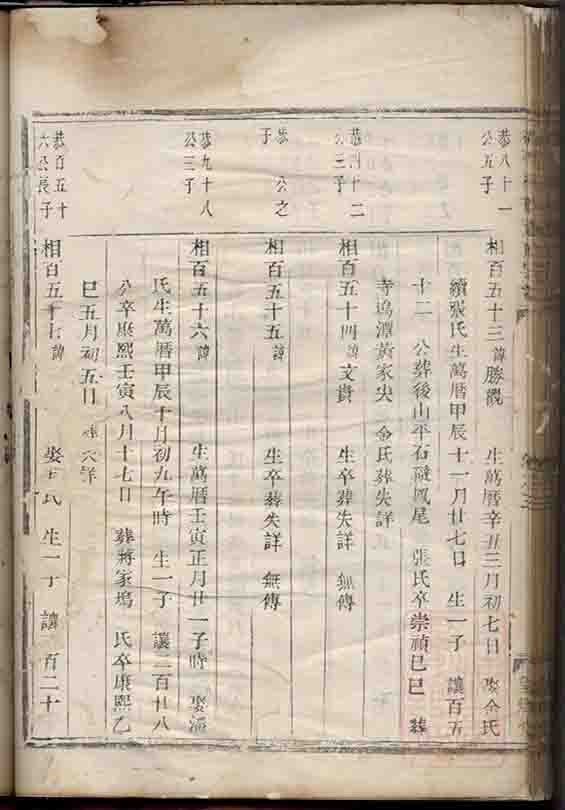 恭八十一
公五子
相百五十三 諱 勝觀 生萬曆辛丑三月初七日 娶余氏
續張氏生萬曆甲辰十一月廿七日 生一子 讓百五
十二 公葬後山平石隨鳳尾 張氏卒崇禎己巳 葬
寺塢潭黃家尖 余氏葬失詳
恭四十二
公三子
相百五十四 諱 文貴 生卒葬失詳 無傳
恭 公之
子
相百五十五 諱 生卒葬失詳 無傳
恭九十八
公三子
相百五十六 諱 生萬曆壬寅正月廿一子時 娶
氏生萬曆甲辰十月初九午時 生一子 讓二百廿八
公卒康熙壬寅八月十七日 葬蔣家塢 氏卒康熙乙
巳五月初五日 失詳
恭百五十
六公長子
相百五十七 諱 娶 氏 生一子 讓 百二十